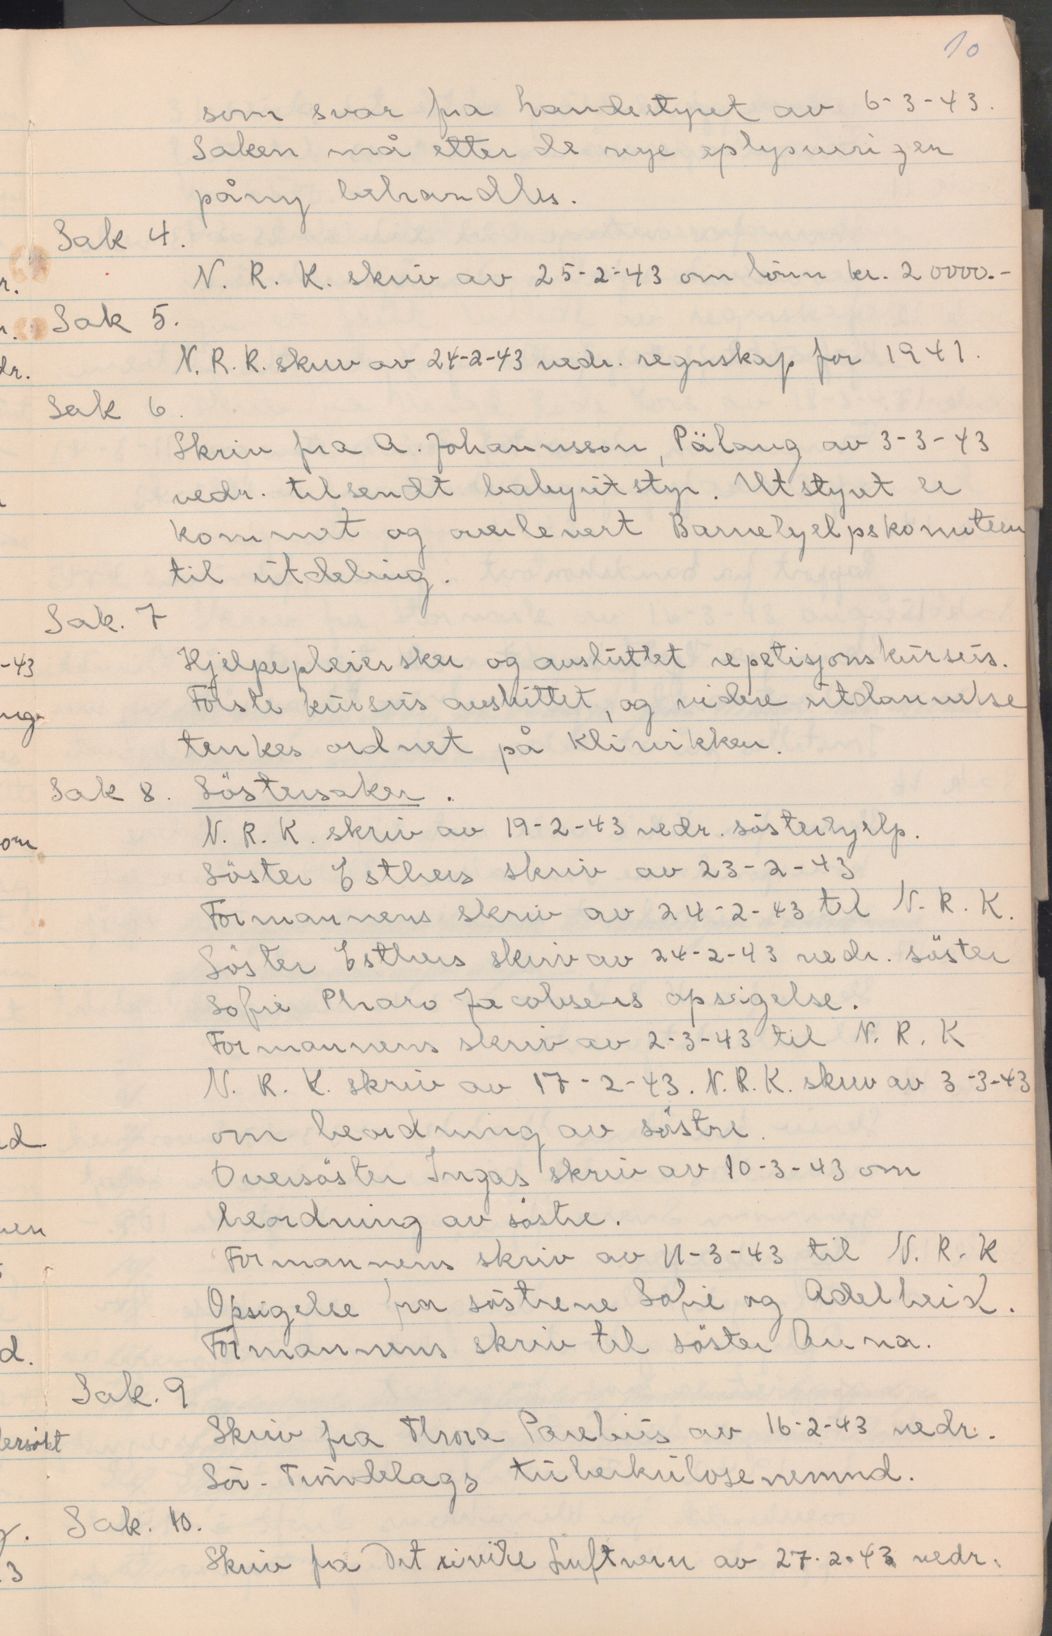 10
som svar fra landsstyret av 6-3-43.
Saken må etter de nye oplysninger
påny behandles.
Sak 4.
N. R. K. skriv av 25-2-43 om lönn kr. 20000.-
Sak 5.
N. R. K. skriv av 24-2-43 vedr. regnskap for 1941.
Sak 6.
Skriv fra A. Johannsson, Pälang av 3-3-43
vedr. tilsendt babyutstyr. Utstyret er
kommet og overlevert Barnehjelpskomiteen
til utdeling.
Sak. 7
Hjelpepleiersker og avsluttet repetisjonskursus.
Förste kursus avsluttet, og videre utdannelse
tenkes ordnet på Klinikken.
Sak 8. Söstersaker.
N. R. K. skriv av 19-2-43 vedr. sösterhjelp.
Söster Esthers skriv av 23-2-43
Formannens skriv av 24-2-43 til N. R. K.
Söster Esthers skriv av 24-2-43 vedr. söster
Sofie Pharo Jacobsens opsigelse.
Formannens skriv av 2-3-43 til N. R. K
N. R. K. skriv av 17-2-43. N. R. K. skriv av 3-3-43
om beordning av söstre.
Oversöster Ingas skriv av 10-3-43 om
beordning av söstre.
Formannens skriv av 11-3-43 til N. R. K
Opsigelse fra söstrene Sofie og Adelheid.
Formannens skriv til söster Anna.
Sak. 9
Skriv fra Thora Parelius av 16-2-43 vedr.
Sör-Tröndelags tuberkulosenemnd.
Sak. 10.
Skriv fra Det sivile Luftvern av 27.2.43 vedr.